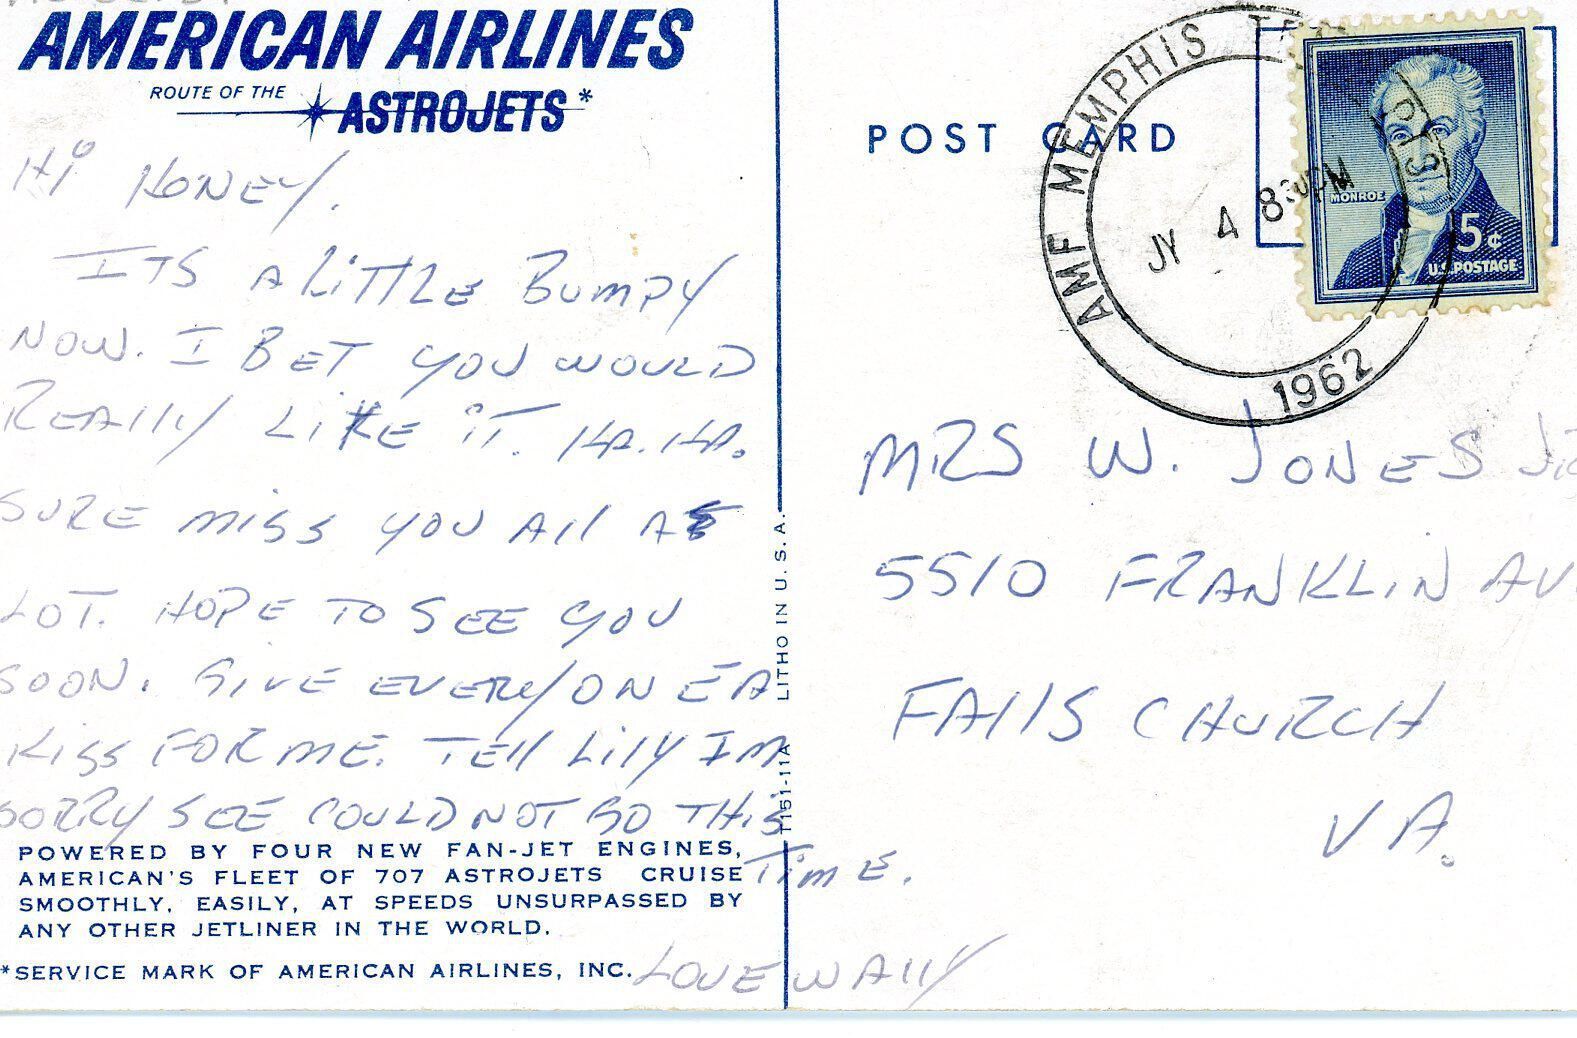 AMERICAN AIRLINES
ROUTE OF THE
ASTROJETS*
Hi HONEY.
ITS A LITTLE BUMPY
NOW. I BET YOU WOULD
REAlly LIKE iT. HA. HA.
SURE miss YOU All A
LOT. HOPE TO SEE YOU
SOON. GIVE EVERYONE A
KiSS FOR ME. TEll LilY IM
SORRY SEE COULD NOT GO THIS
TimE.
LOVE WAllY
POWERED BY FOUR NEW FAN-JET ENGINES,
AMERICAN'S FLEET OF 707 ASTROJETS CRUISE
SMOOTHLY, EASILY, AT SPEEDS UNSURPASSED BY
ANY OTHER JETLINER IN THE WORLD.
*SERVICE MARK OF AMERICAN AIRLINES, INC.
T151-11A LITHO IN U. S. A.
POST CARD
AMF MEMPHIS
JY 4 8 30PM
1962
MONROE
5¢
U.S. POSTAGE
MRS W. JONES JR
5510 FRANKLiN AV.
FAllS CHURCH
VA.